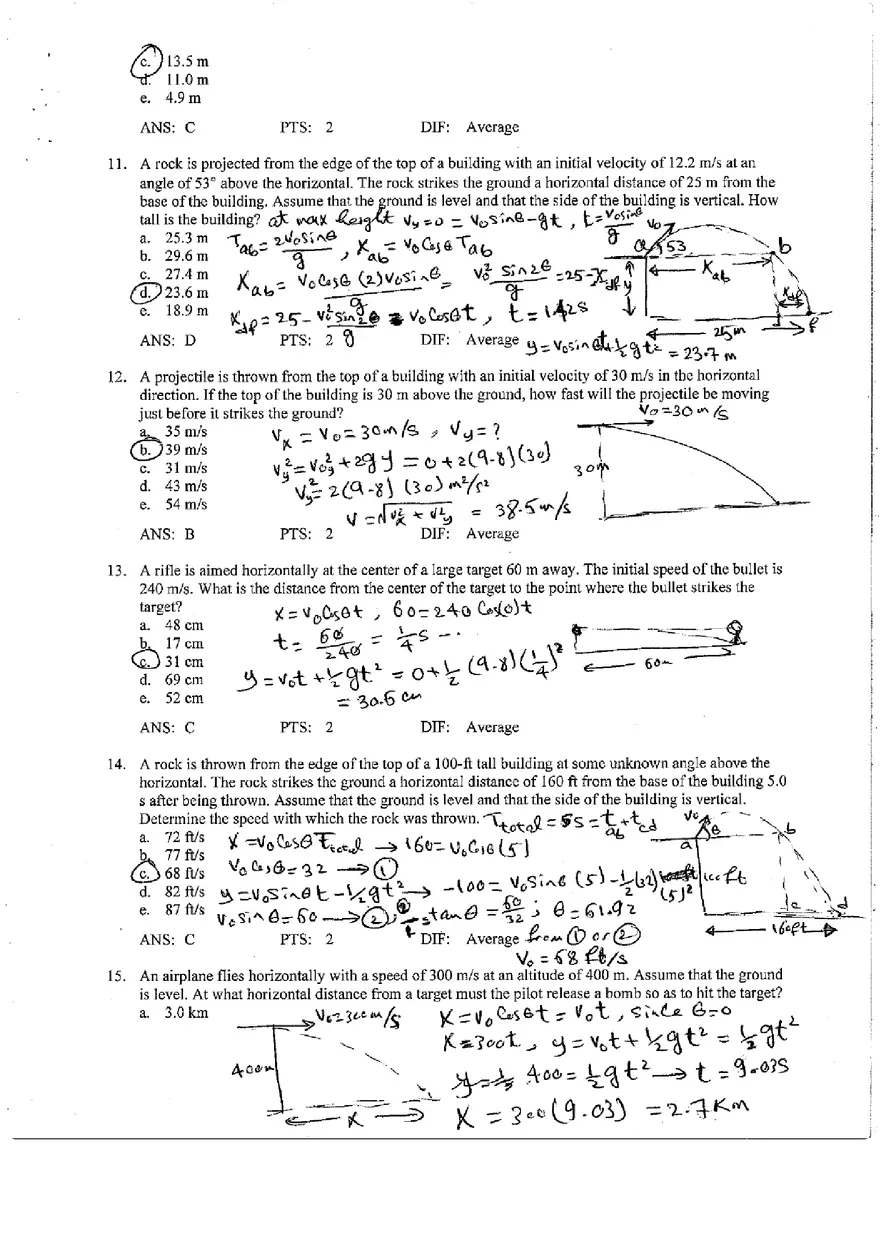 c. 13.5 m
d. 11.0 m
e. 4.9 m
ANS: C PTS: 2 DIF: Average
11. A rock is projected from the edge of the top of a building with an initial velocity of 12.2 m/s at an
angle of 53° above the horizontal. The rock strikes the ground a horizontal distance of 25 m from the
base of the building. Assume that the ground is level and that the side of the building is vertical. How
tall is the building? at max height Vy=0 = V₀Sinθ-gt , t=V₀Sinθ/g V₀
a. 25.3 m Tab=2V₀Sinθ/g , Xab=V₀CosθTab 53 b
b. 29.6 m
c. 27.4 m Xab=V₀Cosθ(2)V₀Sinθ/g = V₀²Sin2θ/g =25-Xdf y Xab
d. 23.6 m
e. 18.9 m Xdf=25-V₀²Sin2θ/g = V₀Cosθt , t=1.42S Xdf
25m f
ANS: D PTS: 2 DIF: Average y=V₀Sinθt+½gt²=23.7 m
12. A projectile is thrown from the top of a building with an initial velocity of 30 m/s in the horizontal
direction. If the top of the building is 30 m above the ground, how fast will the projectile be moving
just before it strikes the ground? V₀=30m/s
a. 35 m/s Vx=V₀=30m/s , Vy=?
b. 39 m/s Vy²=V₀y²+2gy=0+2(9.8)(30) 30m
c. 31 m/s
d. 43 m/s Vy²=2(9.8)(30)m²/s²
e. 54 m/s V=√Vx²+Vy² = 38.5m/s
ANS: B PTS: 2 DIF: Average
13. A rifle is aimed horizontally at the center of a large target 60 m away. The initial speed of the bullet is
240 m/s. What is the distance from the center of the target to the point where the bullet strikes the
target? X=V₀Cosθt , 60=240 Cos(0)t
a. 48 cm
b. 17 cm t=60/240=1/4 s
c. 31 cm 60m
d. 69 cm y=V₀t+½gt²=0+½(9.8)(1/4)²
e. 52 cm =30.6 cm
ANS: C PTS: 2 DIF: Average
14. A rock is thrown from the edge of the top of a 100-ft tall building at some unknown angle above the
horizontal. The rock strikes the ground a horizontal distance of 160 ft from the base of the building 5.0
s after being thrown. Assume that the ground is level and that the side of the building is vertical.
Determine the speed with which the rock was thrown. Ttotal=5s=tab+tcd V₀
a. 72 ft/s X=V₀CosθTtotal → 160=V₀Cosθ(5) a θ b
b. 77 ft/s
c. 68 ft/s V₀Cosθ=32 → ①
d. 82 ft/s y=V₀Sinθt-½gt² → -100=V₀Sinθ(5)-½(32)(5)² 100ft
e. 87 ft/s V₀Sinθ=60 → ② ; tanθ=60/32 ; θ=61.92 c d
160ft
ANS: C PTS: 2 DIF: Average from ① or ②
V₀=68 ft/s
15. An airplane flies horizontally with a speed of 300 m/s at an altitude of 400 m. Assume that the ground
is level. At what horizontal distance from a target must the pilot release a bomb so as to hit the target?
a. 3.0 km V₀=300m/s X=V₀Cosθt=V₀t , since θ=0
X=300t , y=V₀t+½gt²=½gt²
400m 400=½gt² → t=9.03S
X X=300(9.03) =2.7Km